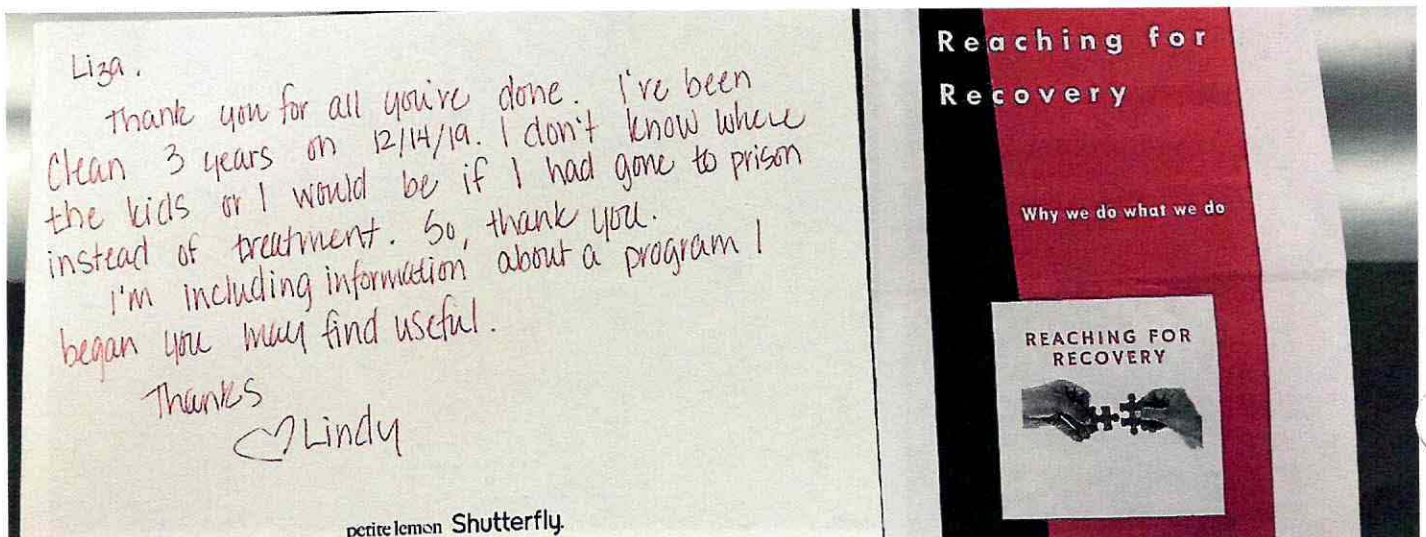 Liza.
Thank you for all you've done. I've been
Clean 3 years on 12/14/19. I don't know where
the kids or I would be if I had gone to prison
instead of treatment. So, thank you.
I'm including information about a program I
began you may find useful.
Thanks
♡Lindy
petite lemon Shutterfly.
Reaching for
Recovery
Why we do what we do
REACHING FOR
RECOVERY